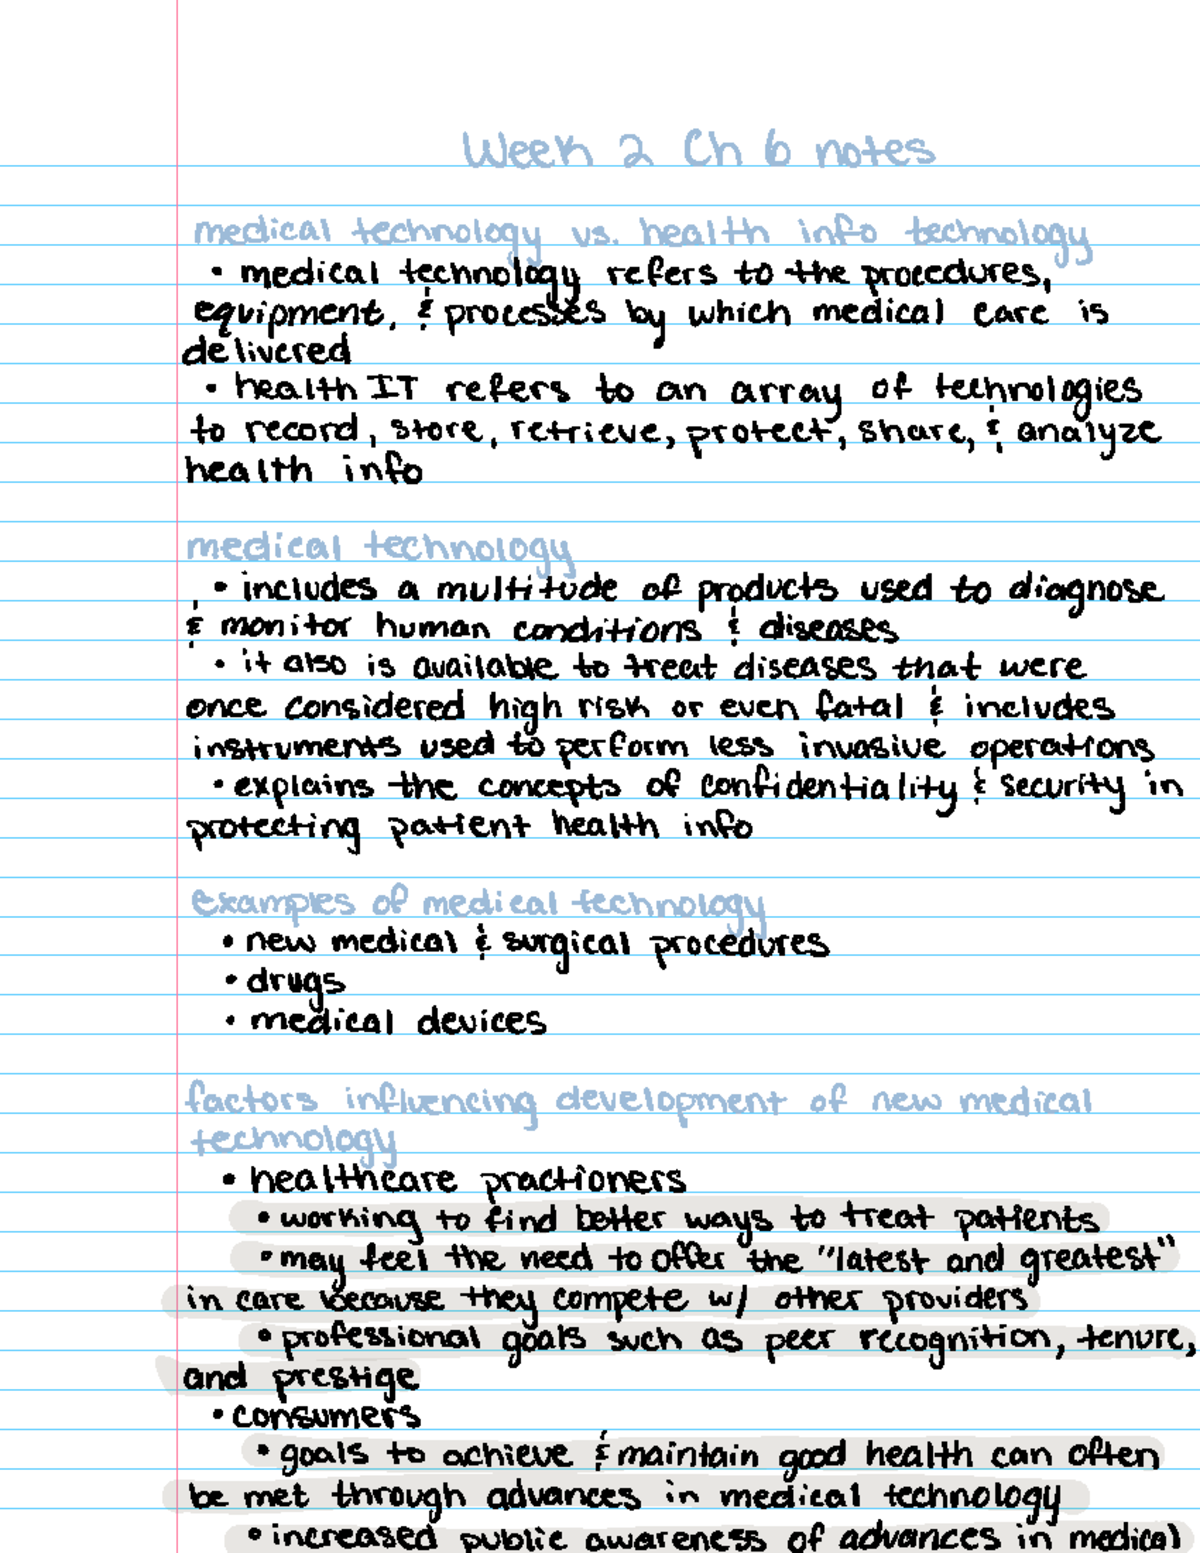 Week 2 Ch 6 notes
medical technology vs. health info technology
• medical technology refers to the procedures,
equipment, & processes by which medical care is
delivered
• health IT refers to an array of technologies
to record, store, retrieve, protect, share, & analyze
health info
medical technology
• includes a multitude of products used to diagnose
& monitor human conditions & diseases
• it also is available to treat diseases that were
once considered high risk or even fatal & includes
instruments used to perform less invasive operations
• explains the concepts of confidentiality & security in
protecting patient health info
examples of medical technology
• new medical & surgical procedures
• drugs
• medical devices
factors influencing development of new medical
technology
• healthcare practioners
• working to find better ways to treat patients
• may feel the need to offer the "latest and greatest"
in care because they compete w/ other providers
• professional goals such as peer recognition, tenure,
and prestige
• consumers
• goals to achieve & maintain good health can often
be met through advances in medical technology
• increased public awareness of advances in medical